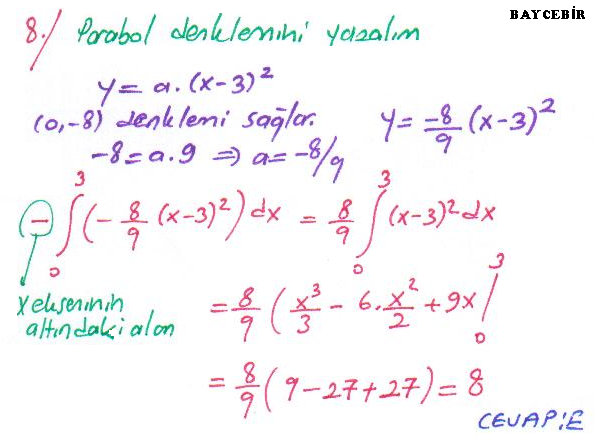 BAYCEBİR
8./ Parabol denklemini yazalım
y = a.(x-3)²
(0,-8) denklemi sağlar. y = -8/9 (x-3)²
-8 = a.9 ⇒ a = -8/9
- ∫₀³ (-8/9 (x-3)²) dx = 8/9 ∫₀³ (x-3)² dx
x ekseninin
altındaki alan
= 8/9 ( x³/3 - 6.x²/2 + 9x |₀³
= 8/9 ( 9 - 27 + 27) = 8
CEVAP:E